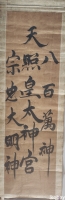 八百萬神
天照皇太神宮
宗忠大明神